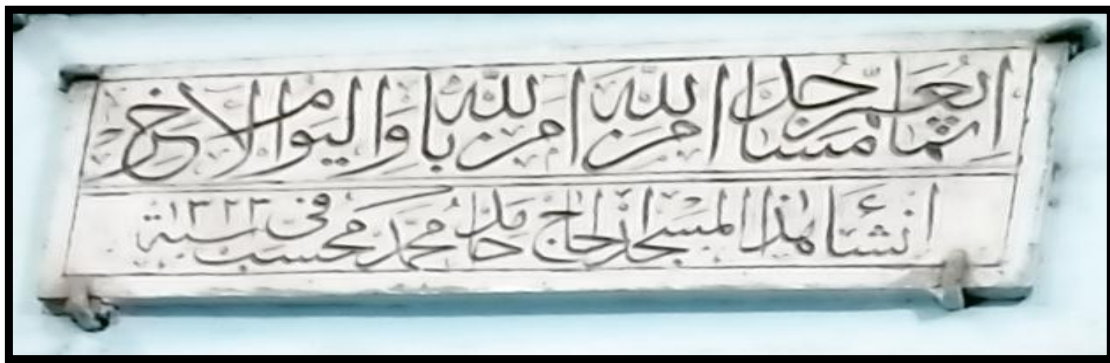 انما يعمر مساجد الله من امن بالله واليوم الاخر
انشأ هذا المسجد الحاج حامد محمد محسب فى سنة ١٣٢٣